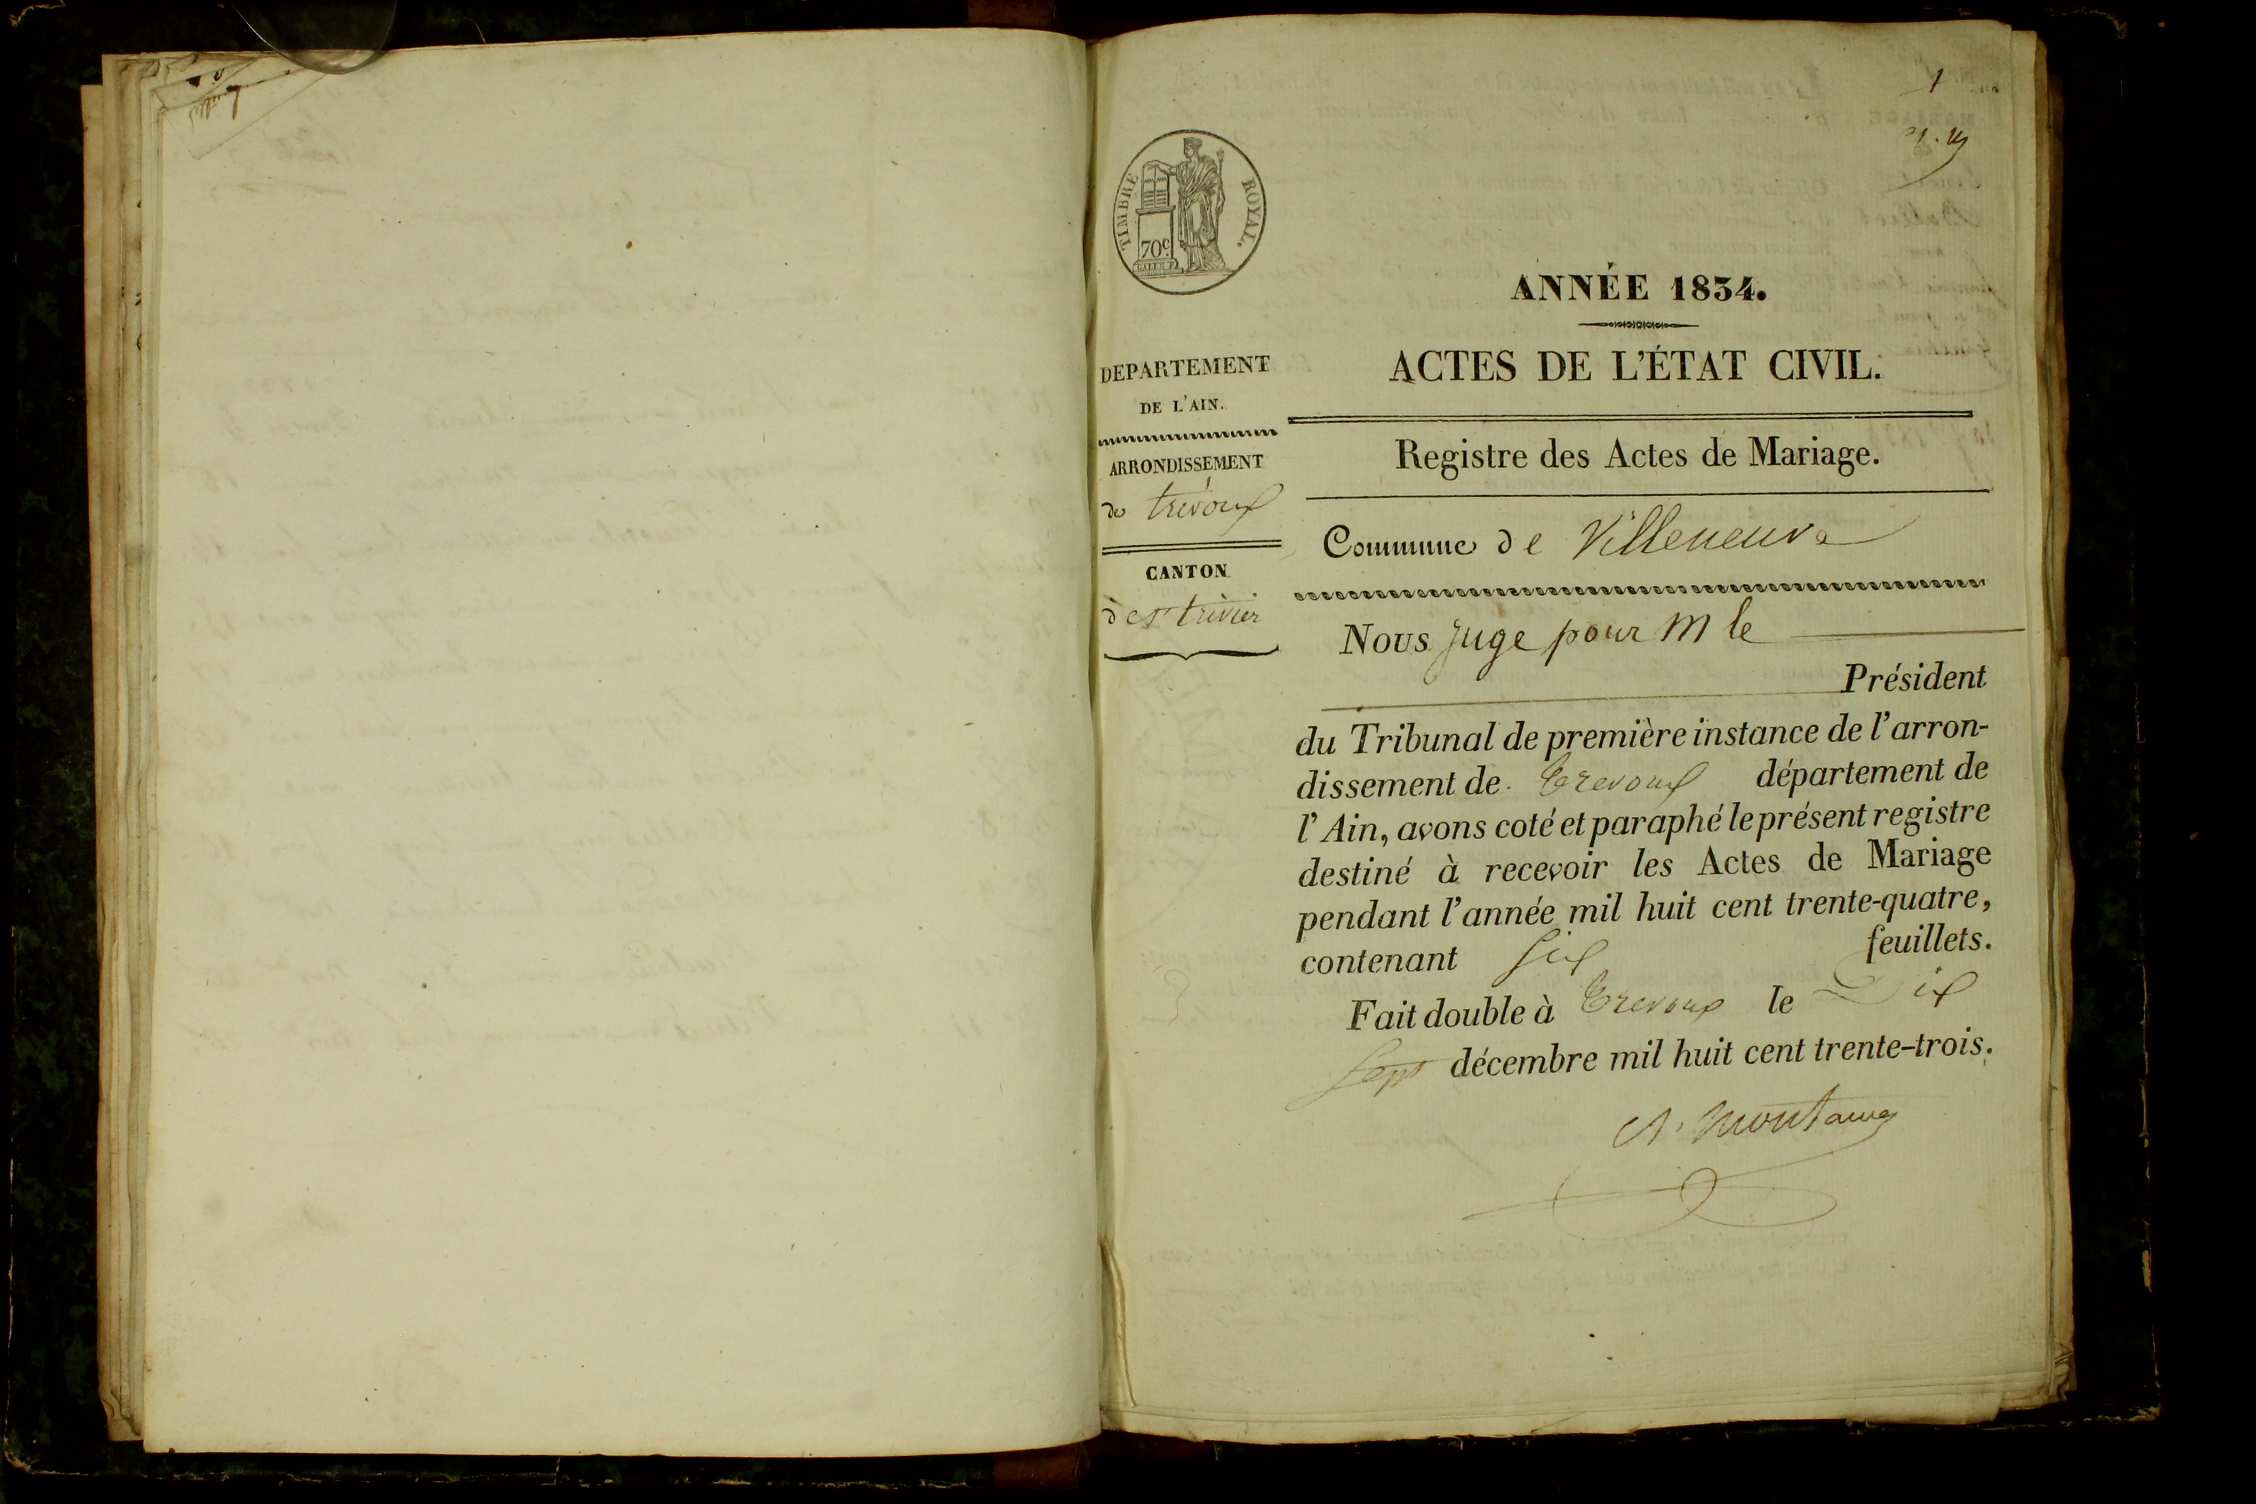 1
TIMBRE ROYAL.
70c
ANNÉE 1834.
ACTES DE L'ÉTAT CIVIL.
Registre des Actes de Mariage.
DEPARTEMENT
DE L'AIN.
ARRONDISSEMENT
de trévoux
CANTON
de St trivier
Commune de Villeneuve
Nous juge pour M le
Président
du Tribunal de première instance de l'arron-
dissement de Trevoux département de
l'Ain, avons coté et paraphé le présent registre
destiné à recevoir les Actes de Mariage
pendant l'année mil huit cent trente-quatre,
contenant Six feuillets.
Fait double à Trevoux le Dix
Sept décembre mil huit cent trente-trois.